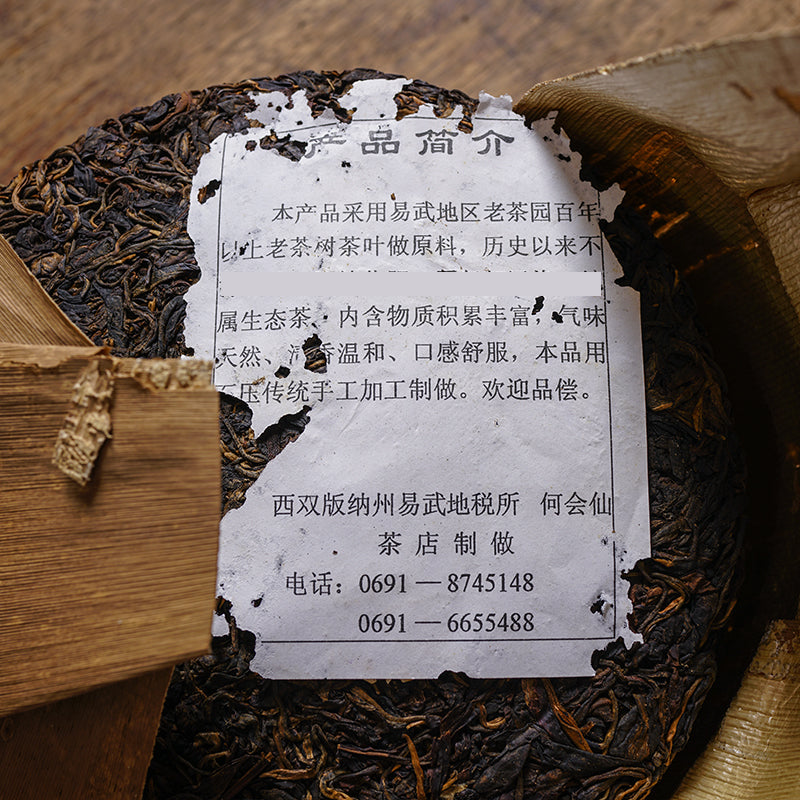 产品简介
本产品采用易武地区老茶园百年
以上老茶树茶叶做原料，历史以来不
属生态茶、内含物质积累丰富，气味
天然、清香温和、口感舒服，本品用
压传统手工加工制做。欢迎品偿。
西双版纳州易武地税所 何会仙
茶店制做
电话：0691—8745148
0691—6655488